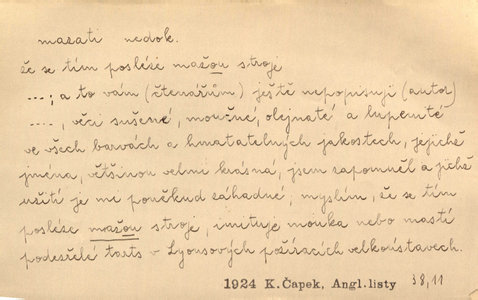 mazati nedok.
že se tím posléze mažou stroje
---; a to vám (čtenářům) ještě nepopisuji (autor)
----, věci sušené, moučné, olejnaté a lupenité
ve všech barvách a hmatatelných jakostech, jejichž
jména, většinou velmi krásná, jsem zapomněl a jichž
užití je mi poněkud záhadné; myslím, že se tím
posléze mažou stroje, imituje mouka nebo mastí
podezřelé tarts v Lyonsových požíracích velkoústavech.
1924 K.Čapek, Angl.listy 38,11